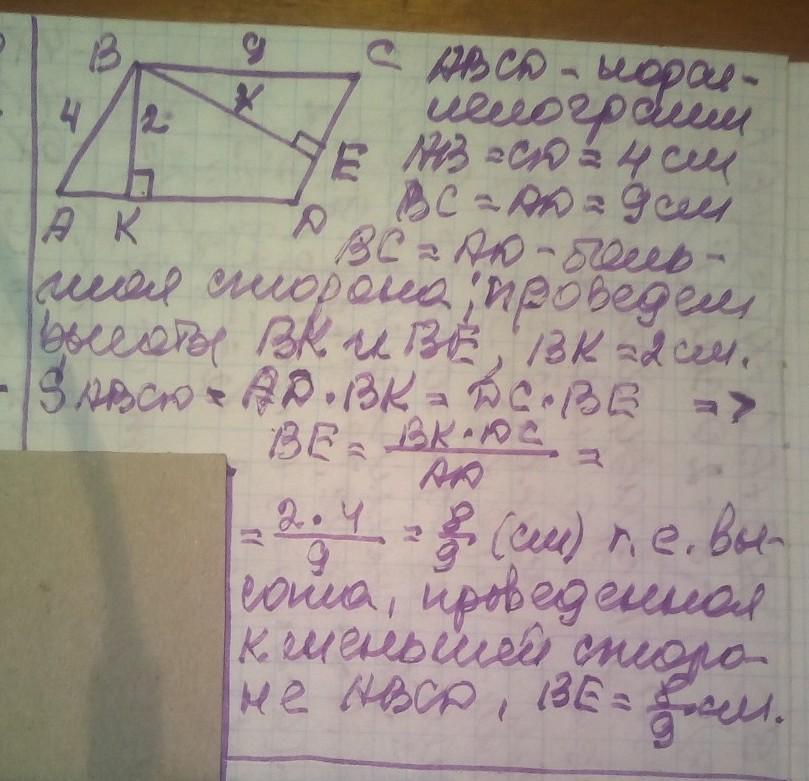 B 9 C
4 2 x
E
A K D
ABCD - парал-
лелограмм
AB = CD = 4 см
BC = AD = 9 см
BC = AD - боль-
шая сторона; проведем
высоты BK и BE, BK = 2 см.
S ABCD = AD · BK = DC · BE =>
BE = BK · DC / AD =
= 2 · 4 / 9 = 8/9 (см) т. е. вы-
сота, проведенная
к меньшей сторо-
не ABCD, BE = 8/9 см.